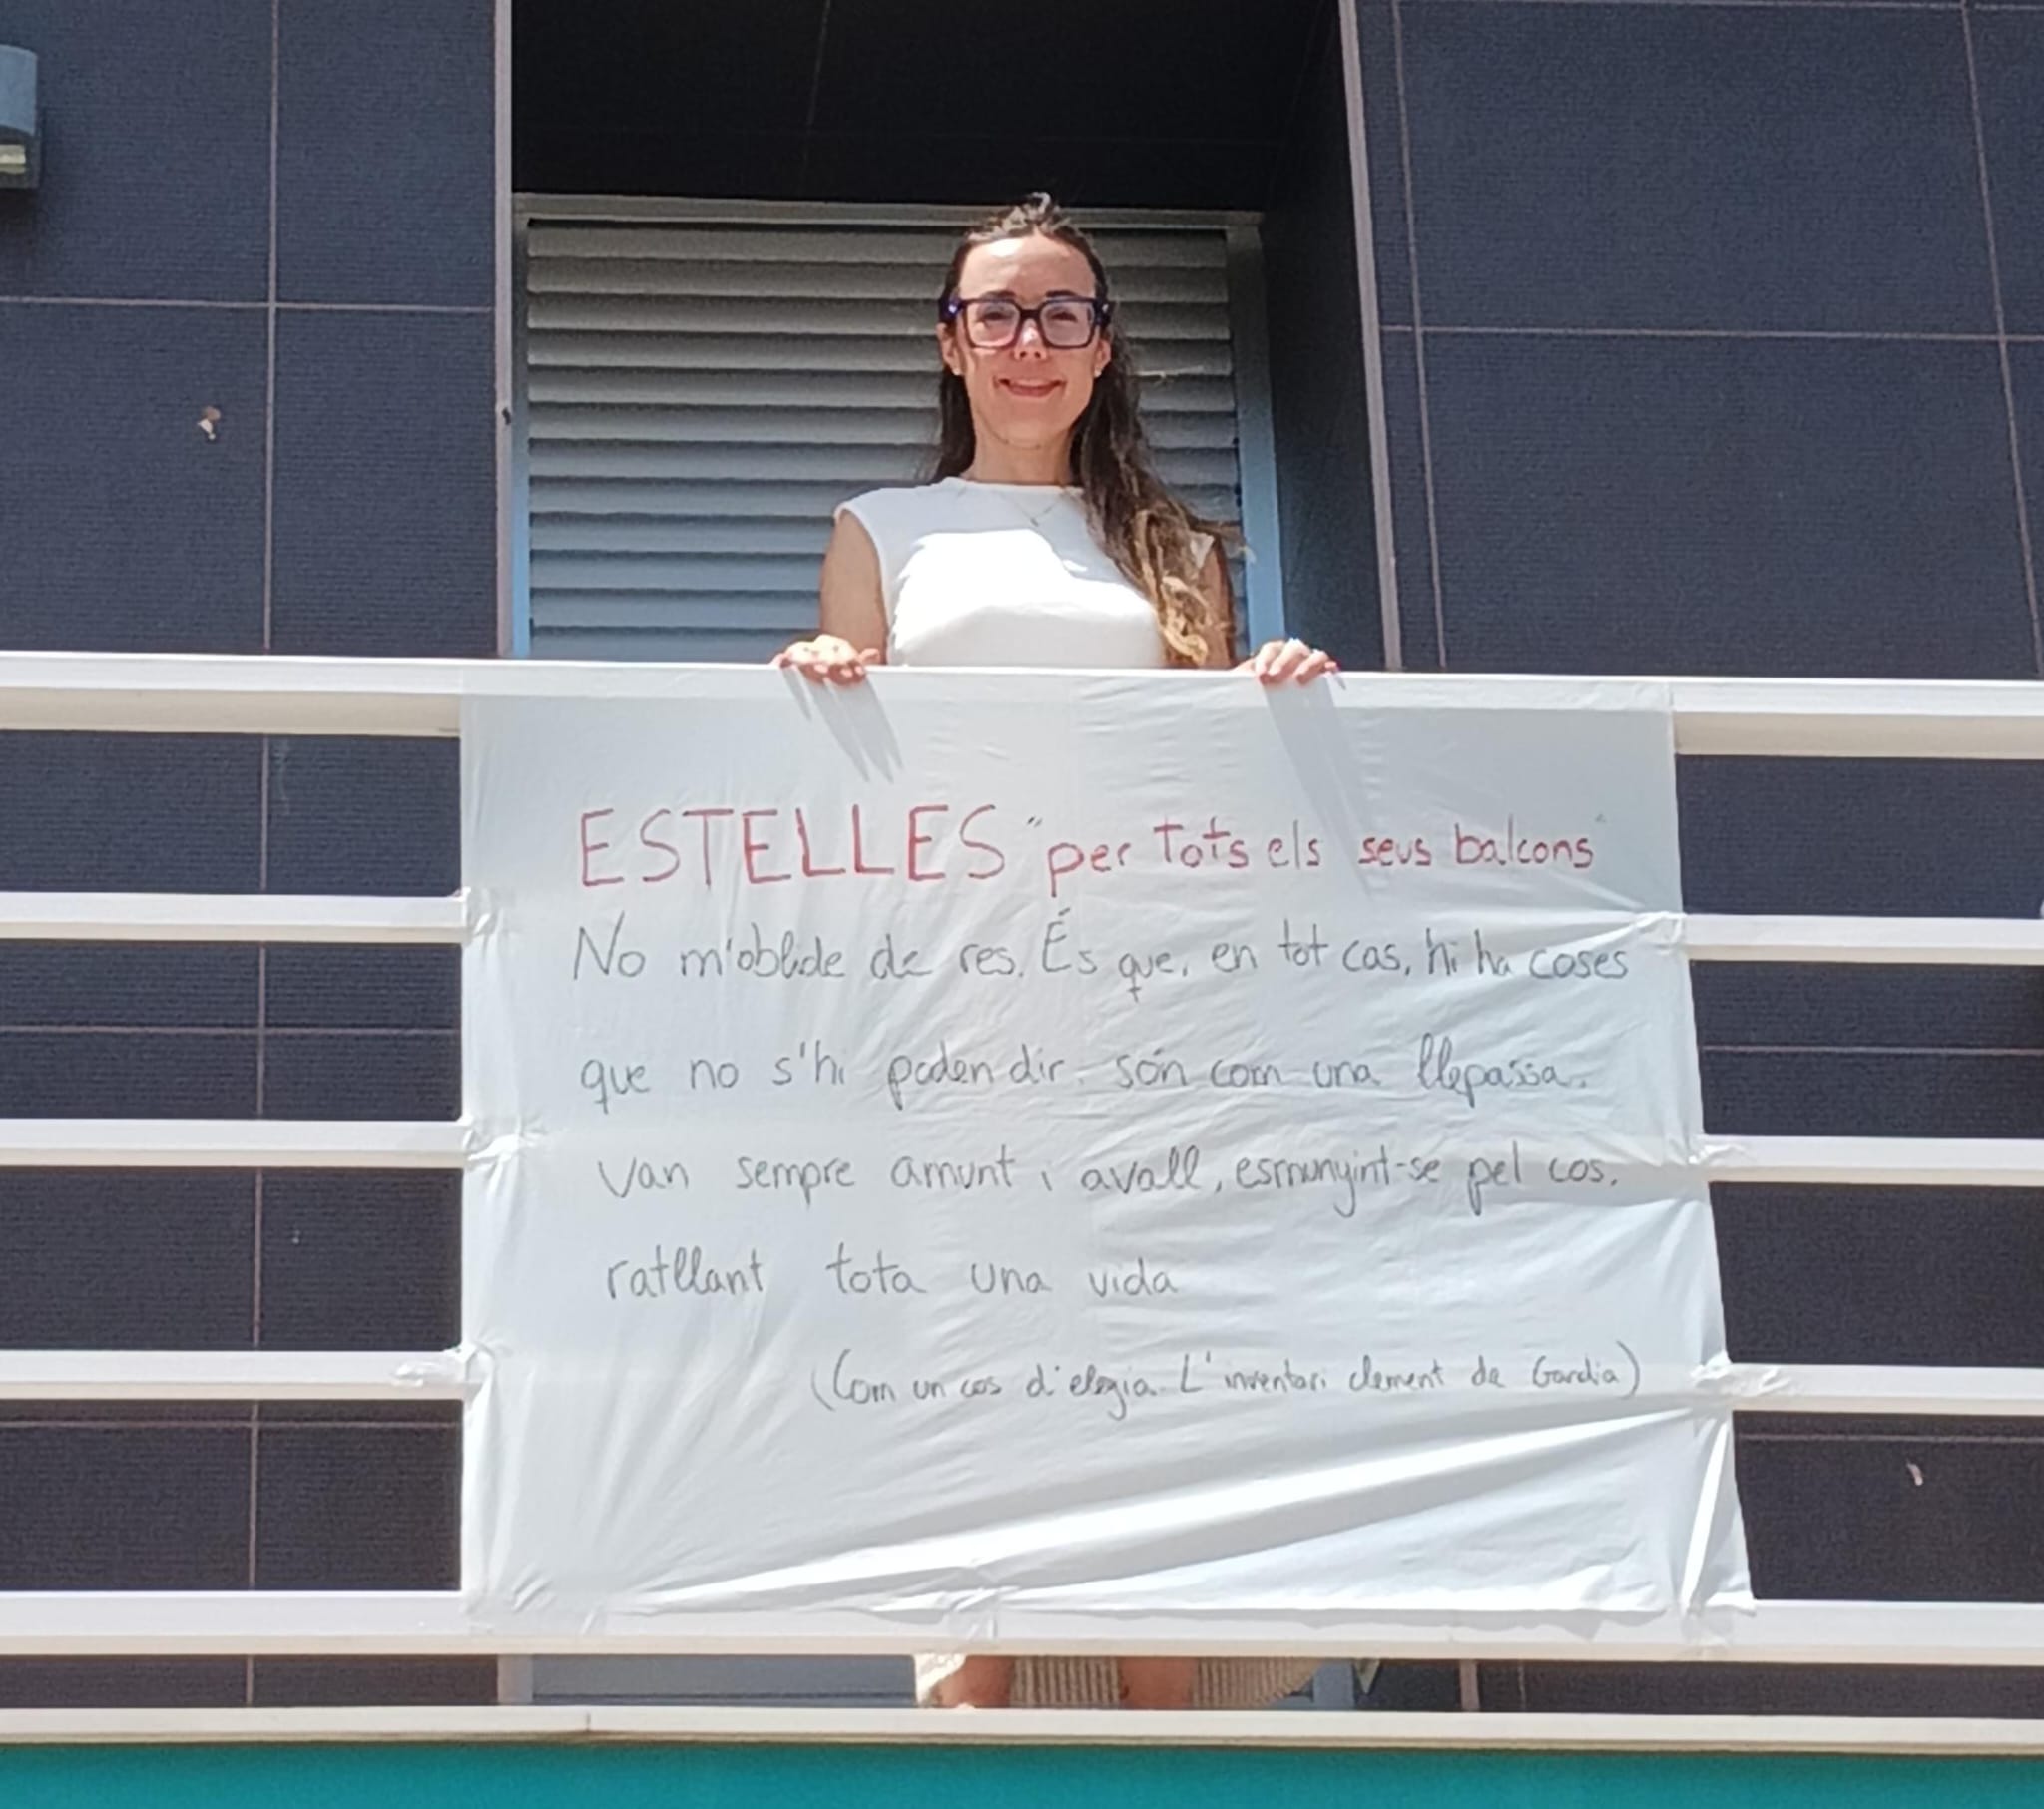 ESTELLES "per tots els seus balcons"
No m'oblide de res. És que, en tot cas, hi ha coses
que no s'hi poden dir. són com una llepassa.
van sempre amunt i avall, esmunyint-se pel cos,
ratllant tota una vida
(Com un cos d'elegia. L'inventari clement de Gandia)